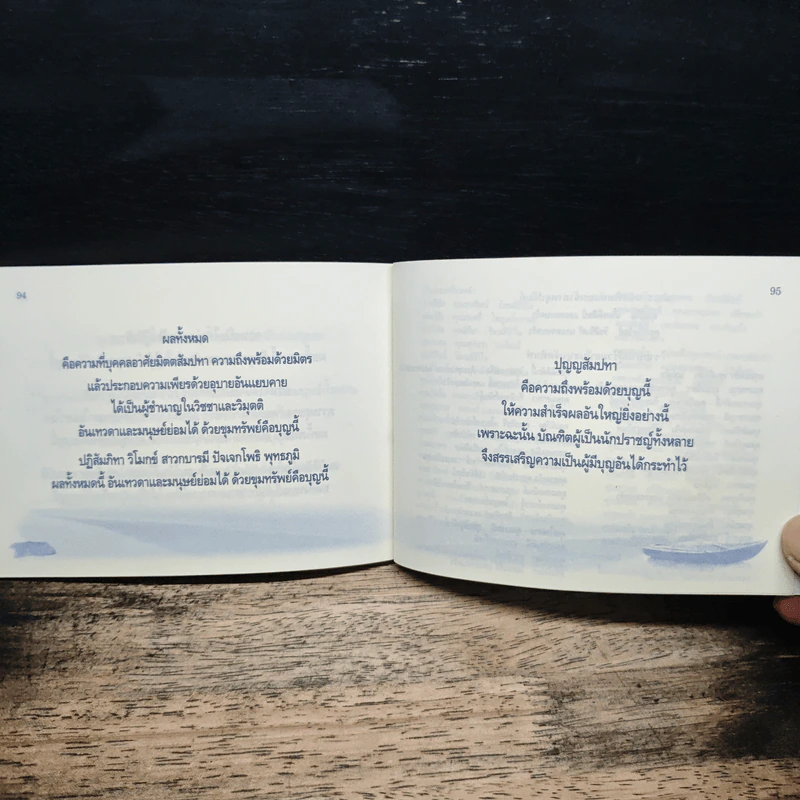 94
ผลทั้งหมด
คือความที่บุคคลอาศัยมิตตสัมปทา ความถึงพร้อมด้วยมิตร
แล้วประกอบความเพียรด้วยอุบายอันแยบคาย
ได้เป็นผู้ชำนาญในวิชชาและวิมุตติ
อันเทวดาและมนุษย์ย่อมได้ ด้วยขุมทรัพย์คือบุญนี้
ปฏิสัมภิทา วิโมกข์ สาวกบารมี ปัจเจกโพธิ พุทธภูมิ
ผลทั้งหมดนี้ อันเทวดาและมนุษย์ย่อมได้ ด้วยขุมทรัพย์คือบุญนี้
95
ปุญญสัมปทา
คือความถึงพร้อมด้วยบุญนี้
ให้ความสำเร็จผลอันใหญ่ยิ่งอย่างนี้
เพราะฉะนั้น บัณฑิตผู้เป็นนักปราชญ์ทั้งหลาย
จึงสรรเสริญความเป็นผู้มีบุญอันได้กระทำไว้